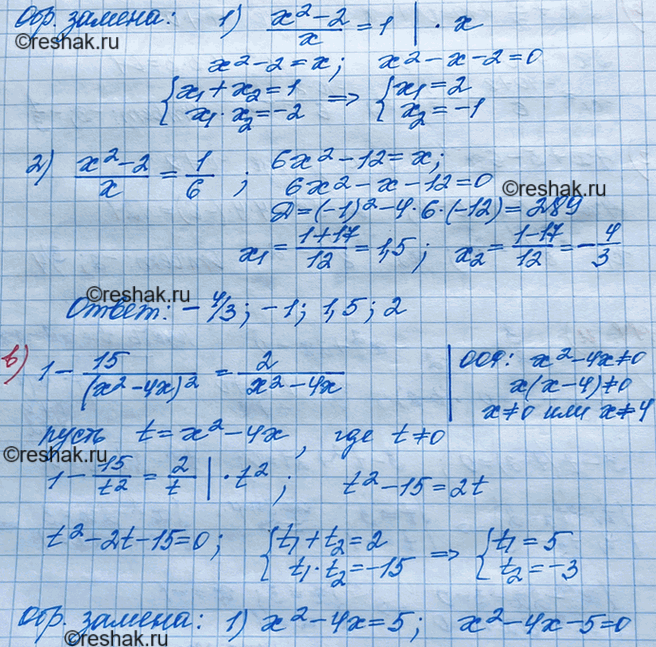 Обр. замена: 1) (x²-2)/x = 1 | · x
©reshak.ru
x²-2=x; x²-x-2=0
{x₁+x₂=1 {x₁=2
x₁·x₂=-2 ⇒ x₂=-1
2) (x²-2)/x = 1/6 ; 6x²-12=x;
6x²-x-12=0
©reshak.ru
Д=(-1)²-4·6·(-12)=289
x₁=(1+17)/12=1,5; x₂=(1-17)/12=-4/3
©reshak.ru
Ответ: -4/3; -1; 1,5; 2
в) 1 - 15/(x²-4x)² = 2/(x²-4x)
ООФ: x²-4x≠0
x(x-4)≠0
x≠0 или x≠4
©reshak.ru
пусть t=x²-4x, где t≠0
©reshak.ru
1 - 15/t² = 2/t | · t² ; t²-15=2t
t²-2t-15=0; {t₁+t₂=2 {t₁=5
t₁·t₂=-15 ⇒ t₂=-3
Обр. замена: 1) x²-4x=5; x²-4x-5=0
©reshak.ru